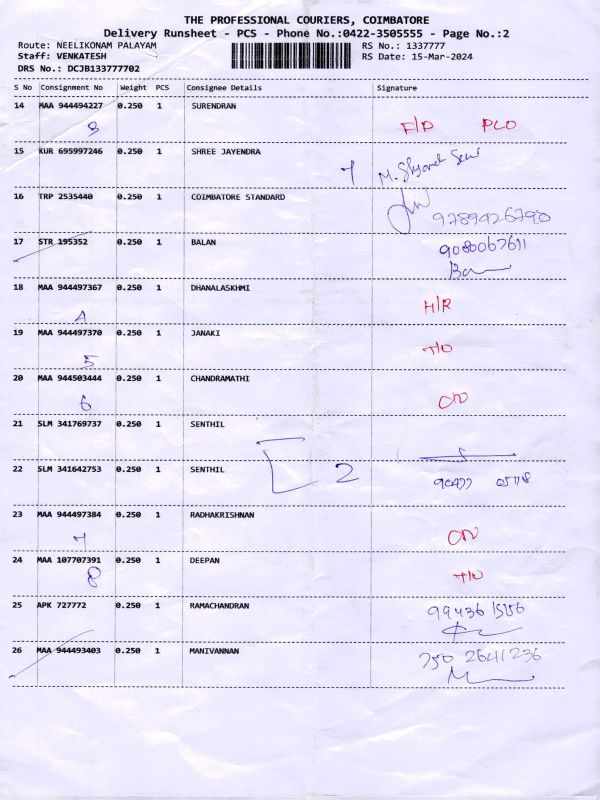 THE PROFESSIONAL COURIERS, COIMBATORE
Delivery Runsheet - PCS - Phone No.:0422-3505555 - Page No.:2
Route: NEELIKONAM PALAYAM
RS No.: 1337777
Staff: VENKATESH
RS Date: 15-Mar-2024
DRS No.: DCJB133777702
S No Consignment No Weight PCS Consignee Details Signature
14 MAA 944494227 0.250 1 SURENDRAN
3 F/D PLO
15 KUR 695997246 0.250 1 SHREE JAYENDRA
16 TRP 2535440 0.250 1 COIMBATORE STANDARD
9789426790
17 STR 195352 0.250 1 BALAN
9080067611
18 MAA 944497367 0.250 1 DHANALASKHMI
H/R
19 MAA 944497370 0.250 1 JANAKI
5 T/O
20 MAA 944503444 0.250 1 CHANDRAMATHI
6
21 SLM 341769737 0.250 1 SENTHIL
22 SLM 341642753 0.250 1 SENTHIL
2
23 MAA 944497384 0.250 1 RADHAKRISHNAN
24 MAA 107707391 0.250 1 DEEPAN
8
25 APK 727772 0.250 1 RAMACHANDRAN
26 MAA 944493403 0.250 1 MANIVANNAN
750 2641236